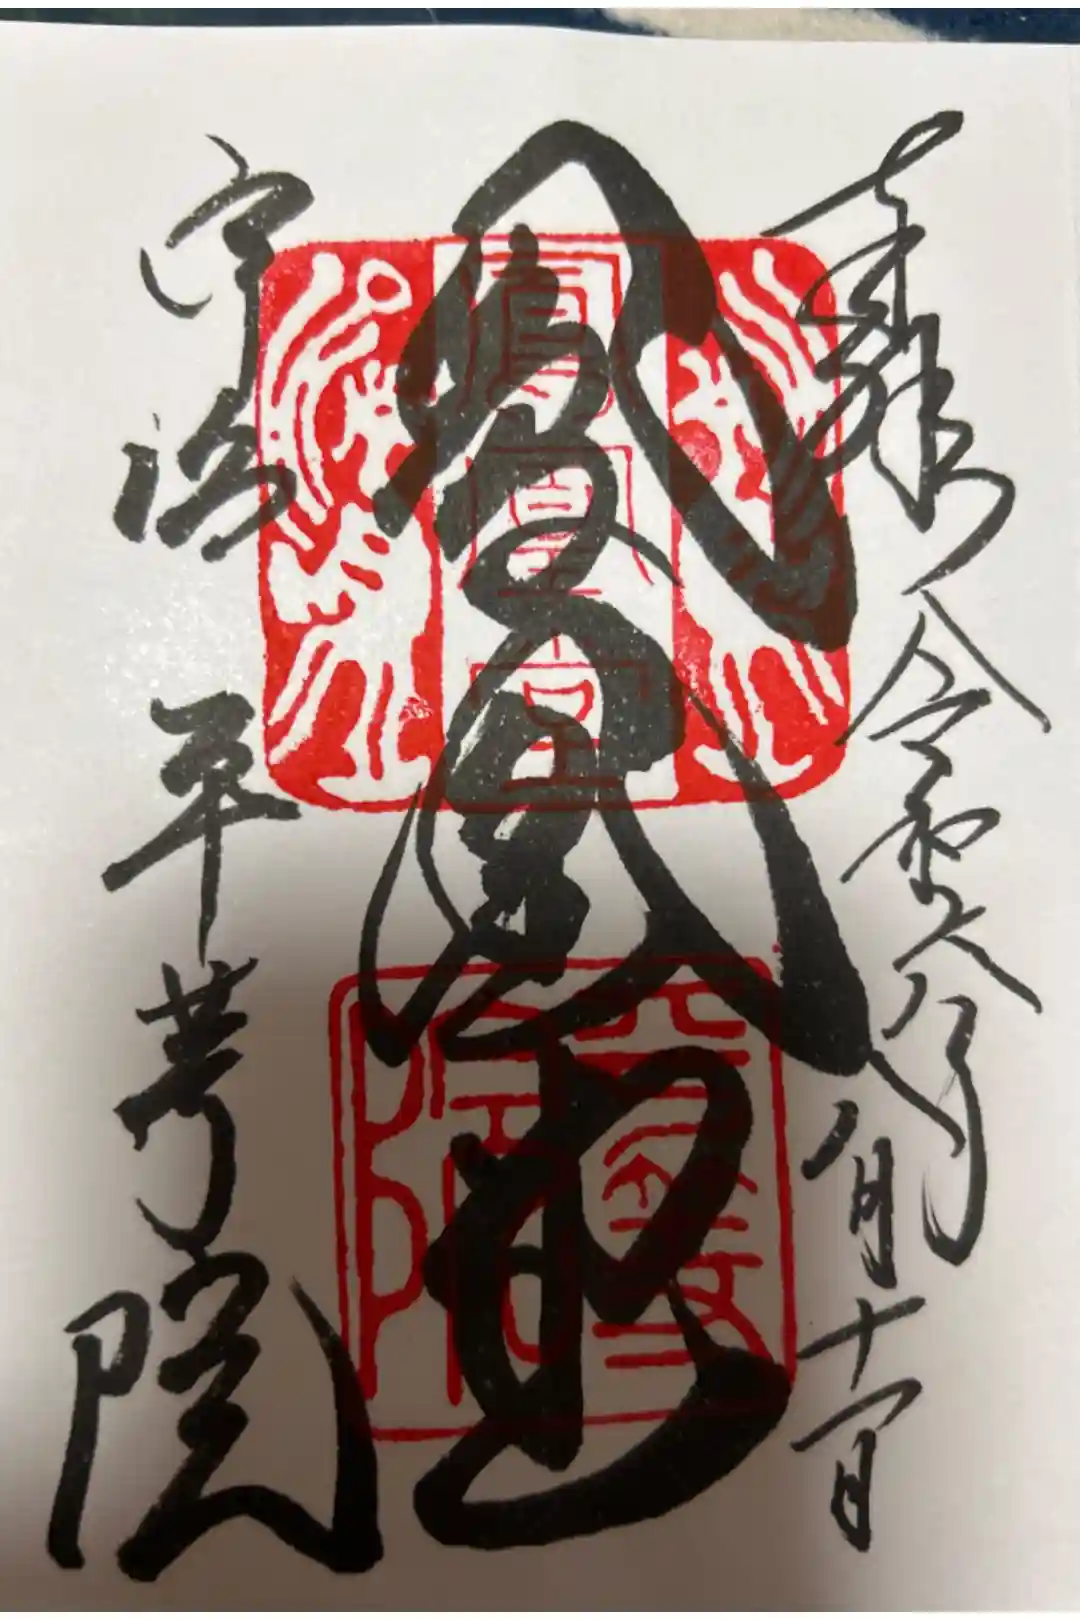 奉拝 令和六年八月十一日
鳳凰堂
宇治 平等院
鳳凰堂
平等院